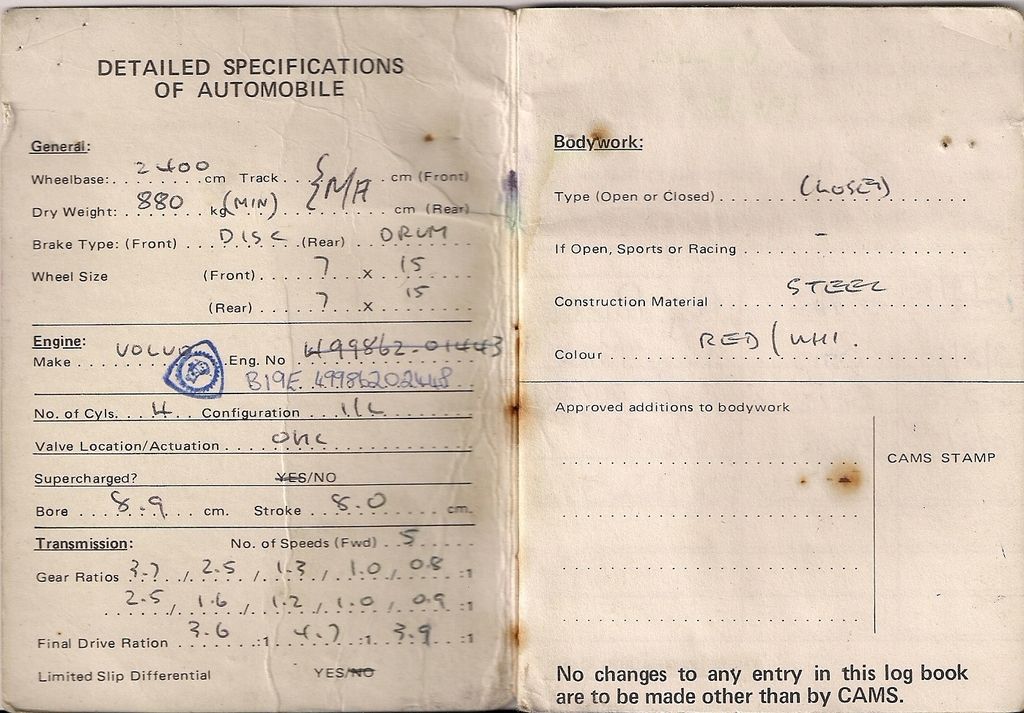 DETAILED SPECIFICATIONS
OF AUTOMOBILE
General:
Wheelbase: 2400 cm Track N/A cm (Front)
Dry Weight: 880 kg (MIN) cm (Rear)
Brake Type: (Front) DISC (Rear) DRUM
Wheel Size (Front) 7 x 15
(Rear) 7 x 15
Engine:
Make VOLVO Eng. No 499862-01443
B19E 49986202448
No. of Cyls. 4 Configuration I/L
Valve Location/Actuation OHC
Supercharged? YES/NO
Bore 8.9 cm. Stroke 8.0 cm.
Transmission: No. of Speeds (Fwd) 5
Gear Ratios 3.7 / 2.5 / 1.3 / 1.0 / 0.8 :1
2.5 / 1.6 / 1.2 / 1.0 / 0.9 :1
Final Drive Ration 3.6 :1 4.7 :1 3.9 :1
Limited Slip Differential YES/NO
Bodywork:
Type (Open or Closed) CLOSED
If Open, Sports or Racing -
Construction Material STEEL
Colour RED/WHI.
Approved additions to bodywork
CAMS STAMP
No changes to any entry in this log book
are to be made other than by CAMS.